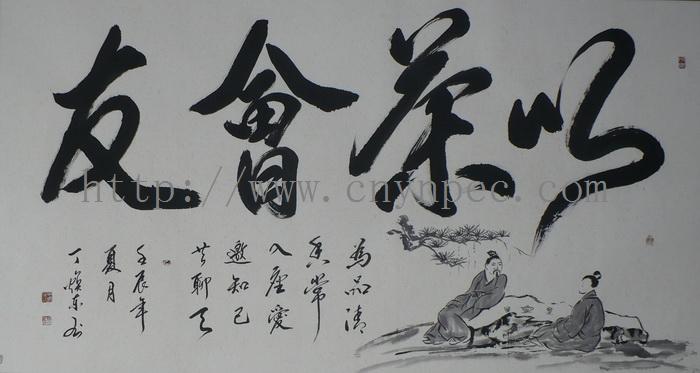 以茶會友
為品清
香常
入座愛
邀知己
共聊天
壬辰年
夏月
丁焕东书
http://www.cnynpec.com